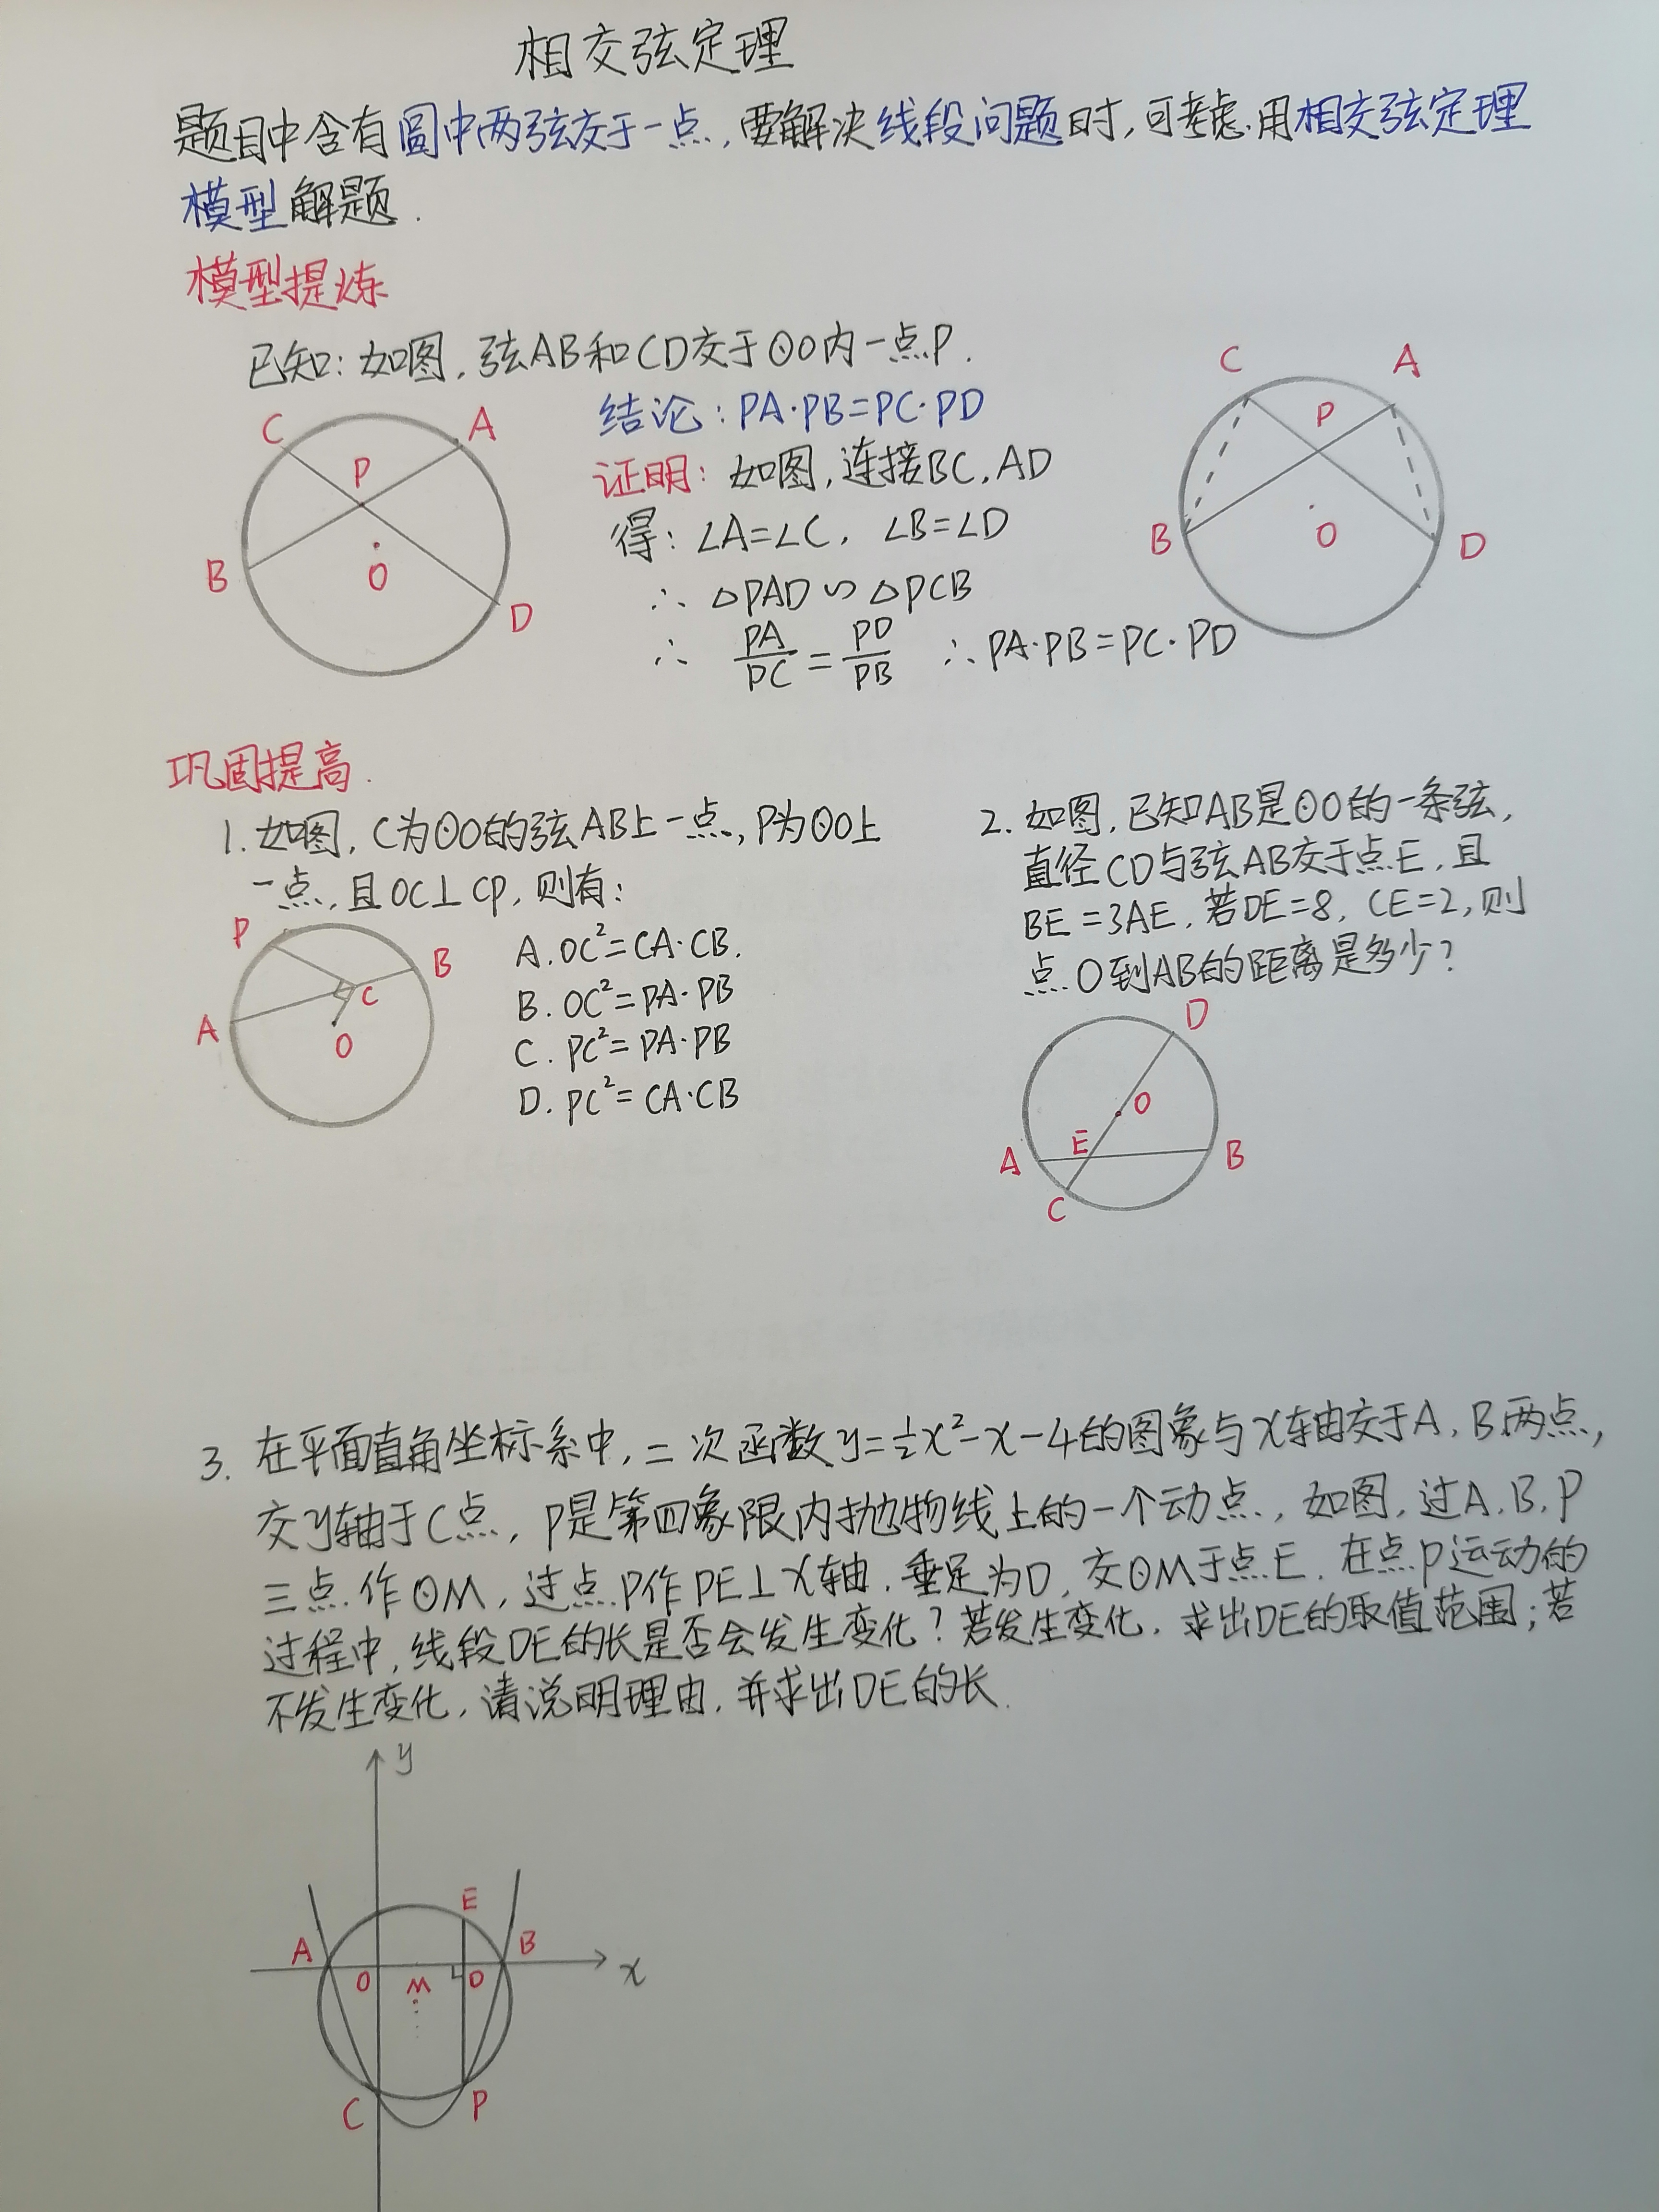 相交弦定理
题目中含有圆中两弦交于一点,要解决线段问题时,可考虑用相交弦定理
模型解题.
模型提炼
已知:如图,弦AB和CD交于⊙O内一点P.
结论:PA·PB=PC·PD
证明:如图,连接BC,AD
得:∠A=∠C, ∠B=∠D
∴ △PAD∽△PCB
∴ PA/PC=PD/PB ∴PA·PB=PC·PD
C
A
P
B
O
D
C
A
P
B
O
D
巩固提高.
1.如图,C为⊙O的弦AB上一点,P为⊙O上
一点,且OC⊥CP,则有:
A.OC²=CA·CB.
B.OC²=PA·PB
C.PC²=PA·PB
D.PC²=CA·CB
P
B
C
A
O
2.如图,已知AB是⊙O的一条弦,
直径CD与弦AB交于点E,且
BE=3AE,若DE=8,CE=2,则
点O到AB的距离是多少?
D
O
E
A
B
C
3.在平面直角坐标系中,二次函数y=½x²-x-4的图象与x轴交于A,B两点,
交y轴于C点,P是第四象限内抛物线上的一个动点,如图,过A,B,P
三点作⊙M,过点P作PE⊥x轴,垂足为D,交⊙M于点E.在点P运动的
过程中,线段DE的长是否会发生变化?若发生变化,求出DE的取值范围;若
不发生变化,请说明理由,并求出DE的长.
y
E
A
B
O
M
D
x
C
P